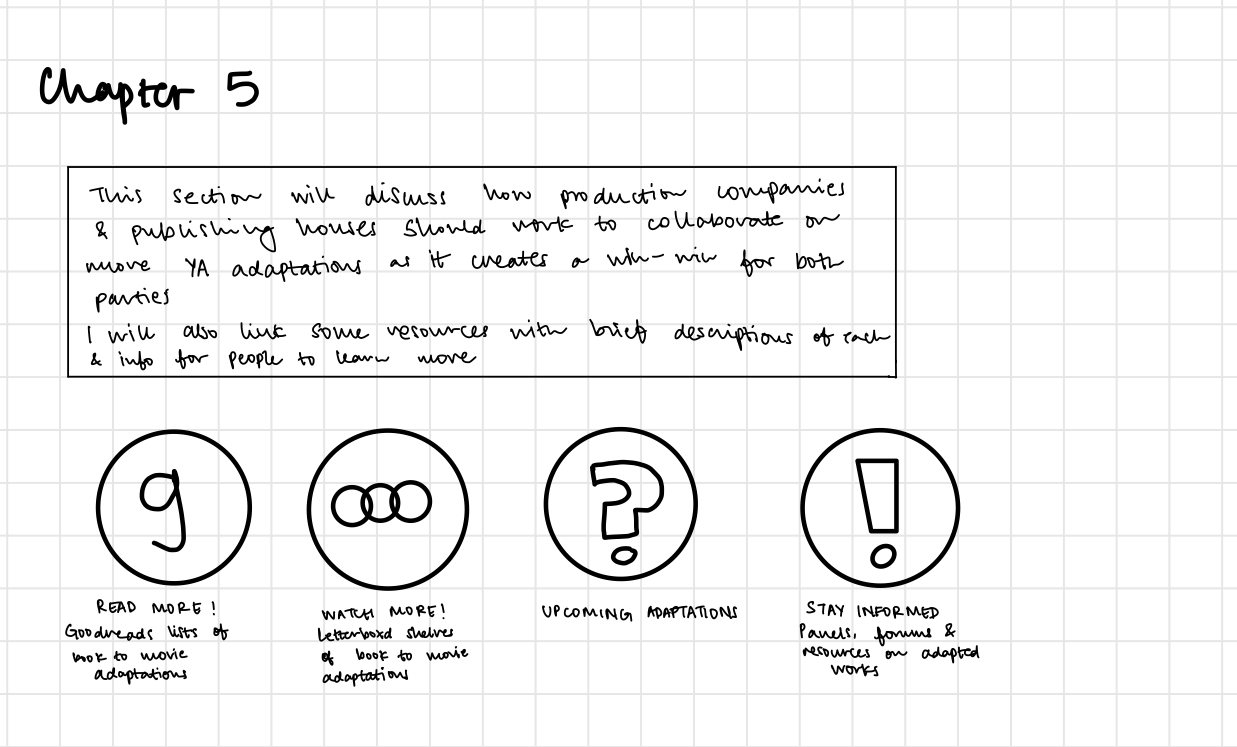 Chapter 5
This section will discuss how production companies
& publishing houses should work to collaborate on
more YA adaptations as it creates a win-win for both
parties
I will also link some resources with brief descriptions of each
& info for people to learn more
g
?
!
READ MORE!
Goodreads lists of
book to movie
adaptations
WATCH MORE!
Letterboxd shelves
of book to movie
adaptations
UPCOMING ADAPTATIONS
STAY INFORMED
Panels, forums &
resources on adapted
works